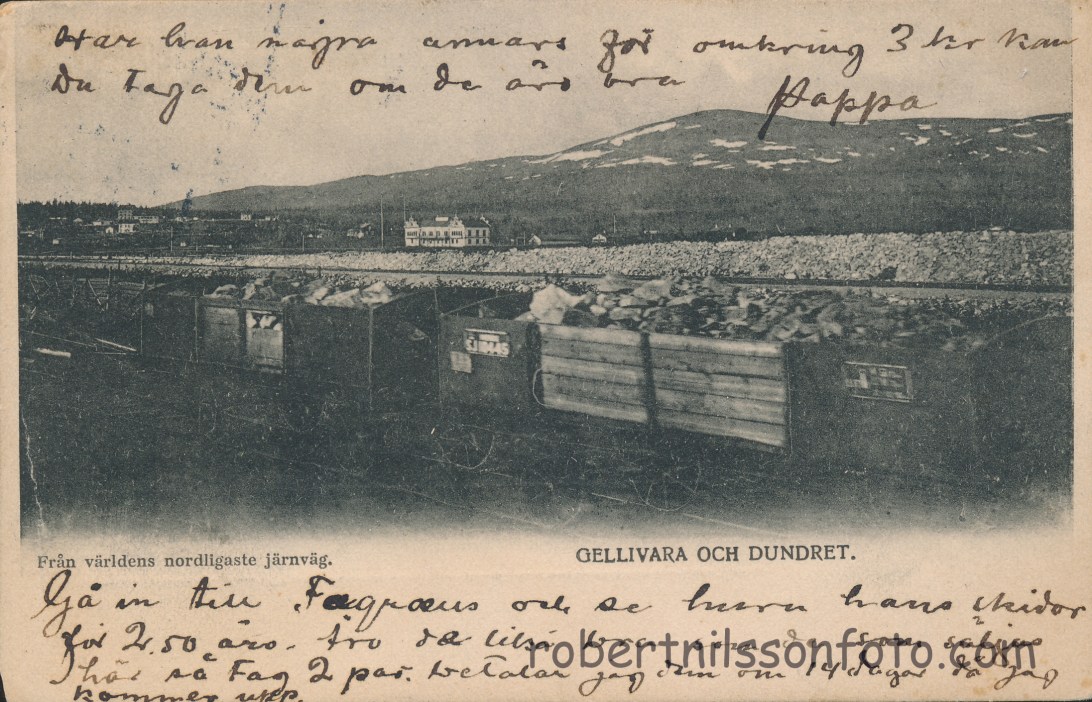 Har han några annars för omkring 3 kr kan
Du taga dem om de äro bra
Pappa
Från världens nordligaste järnväg.
GELLIVARA OCH DUNDRET.
Gå in till Fagræus och se huru hans skidor
för 2,50 äro. tro de som säljas
här så tag 2 par. betalar jag dem om 14 dagar då jag
kommer upp.
robertnilssonfoto.com